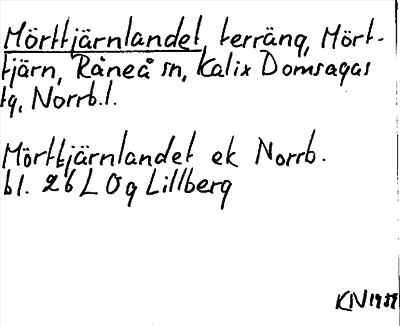 Mörttjärnlandet, terräng, Mört-
tjärn, Råneå sn, Kalix Domsagas
tg, Norrb.l.
Mörttjärnlandet ek Norrb.
bl. 26 L Ög Lillberg